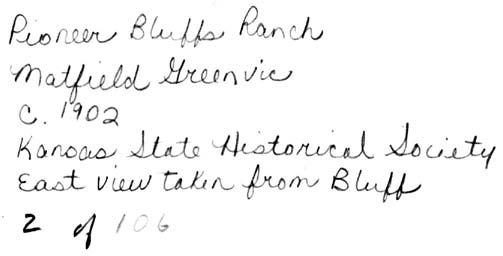 Pioneer Bluffs Ranch
Matfield Green vic
C. 1902
Kansas State Historical Society
East view taken from Bluff
2 of 106